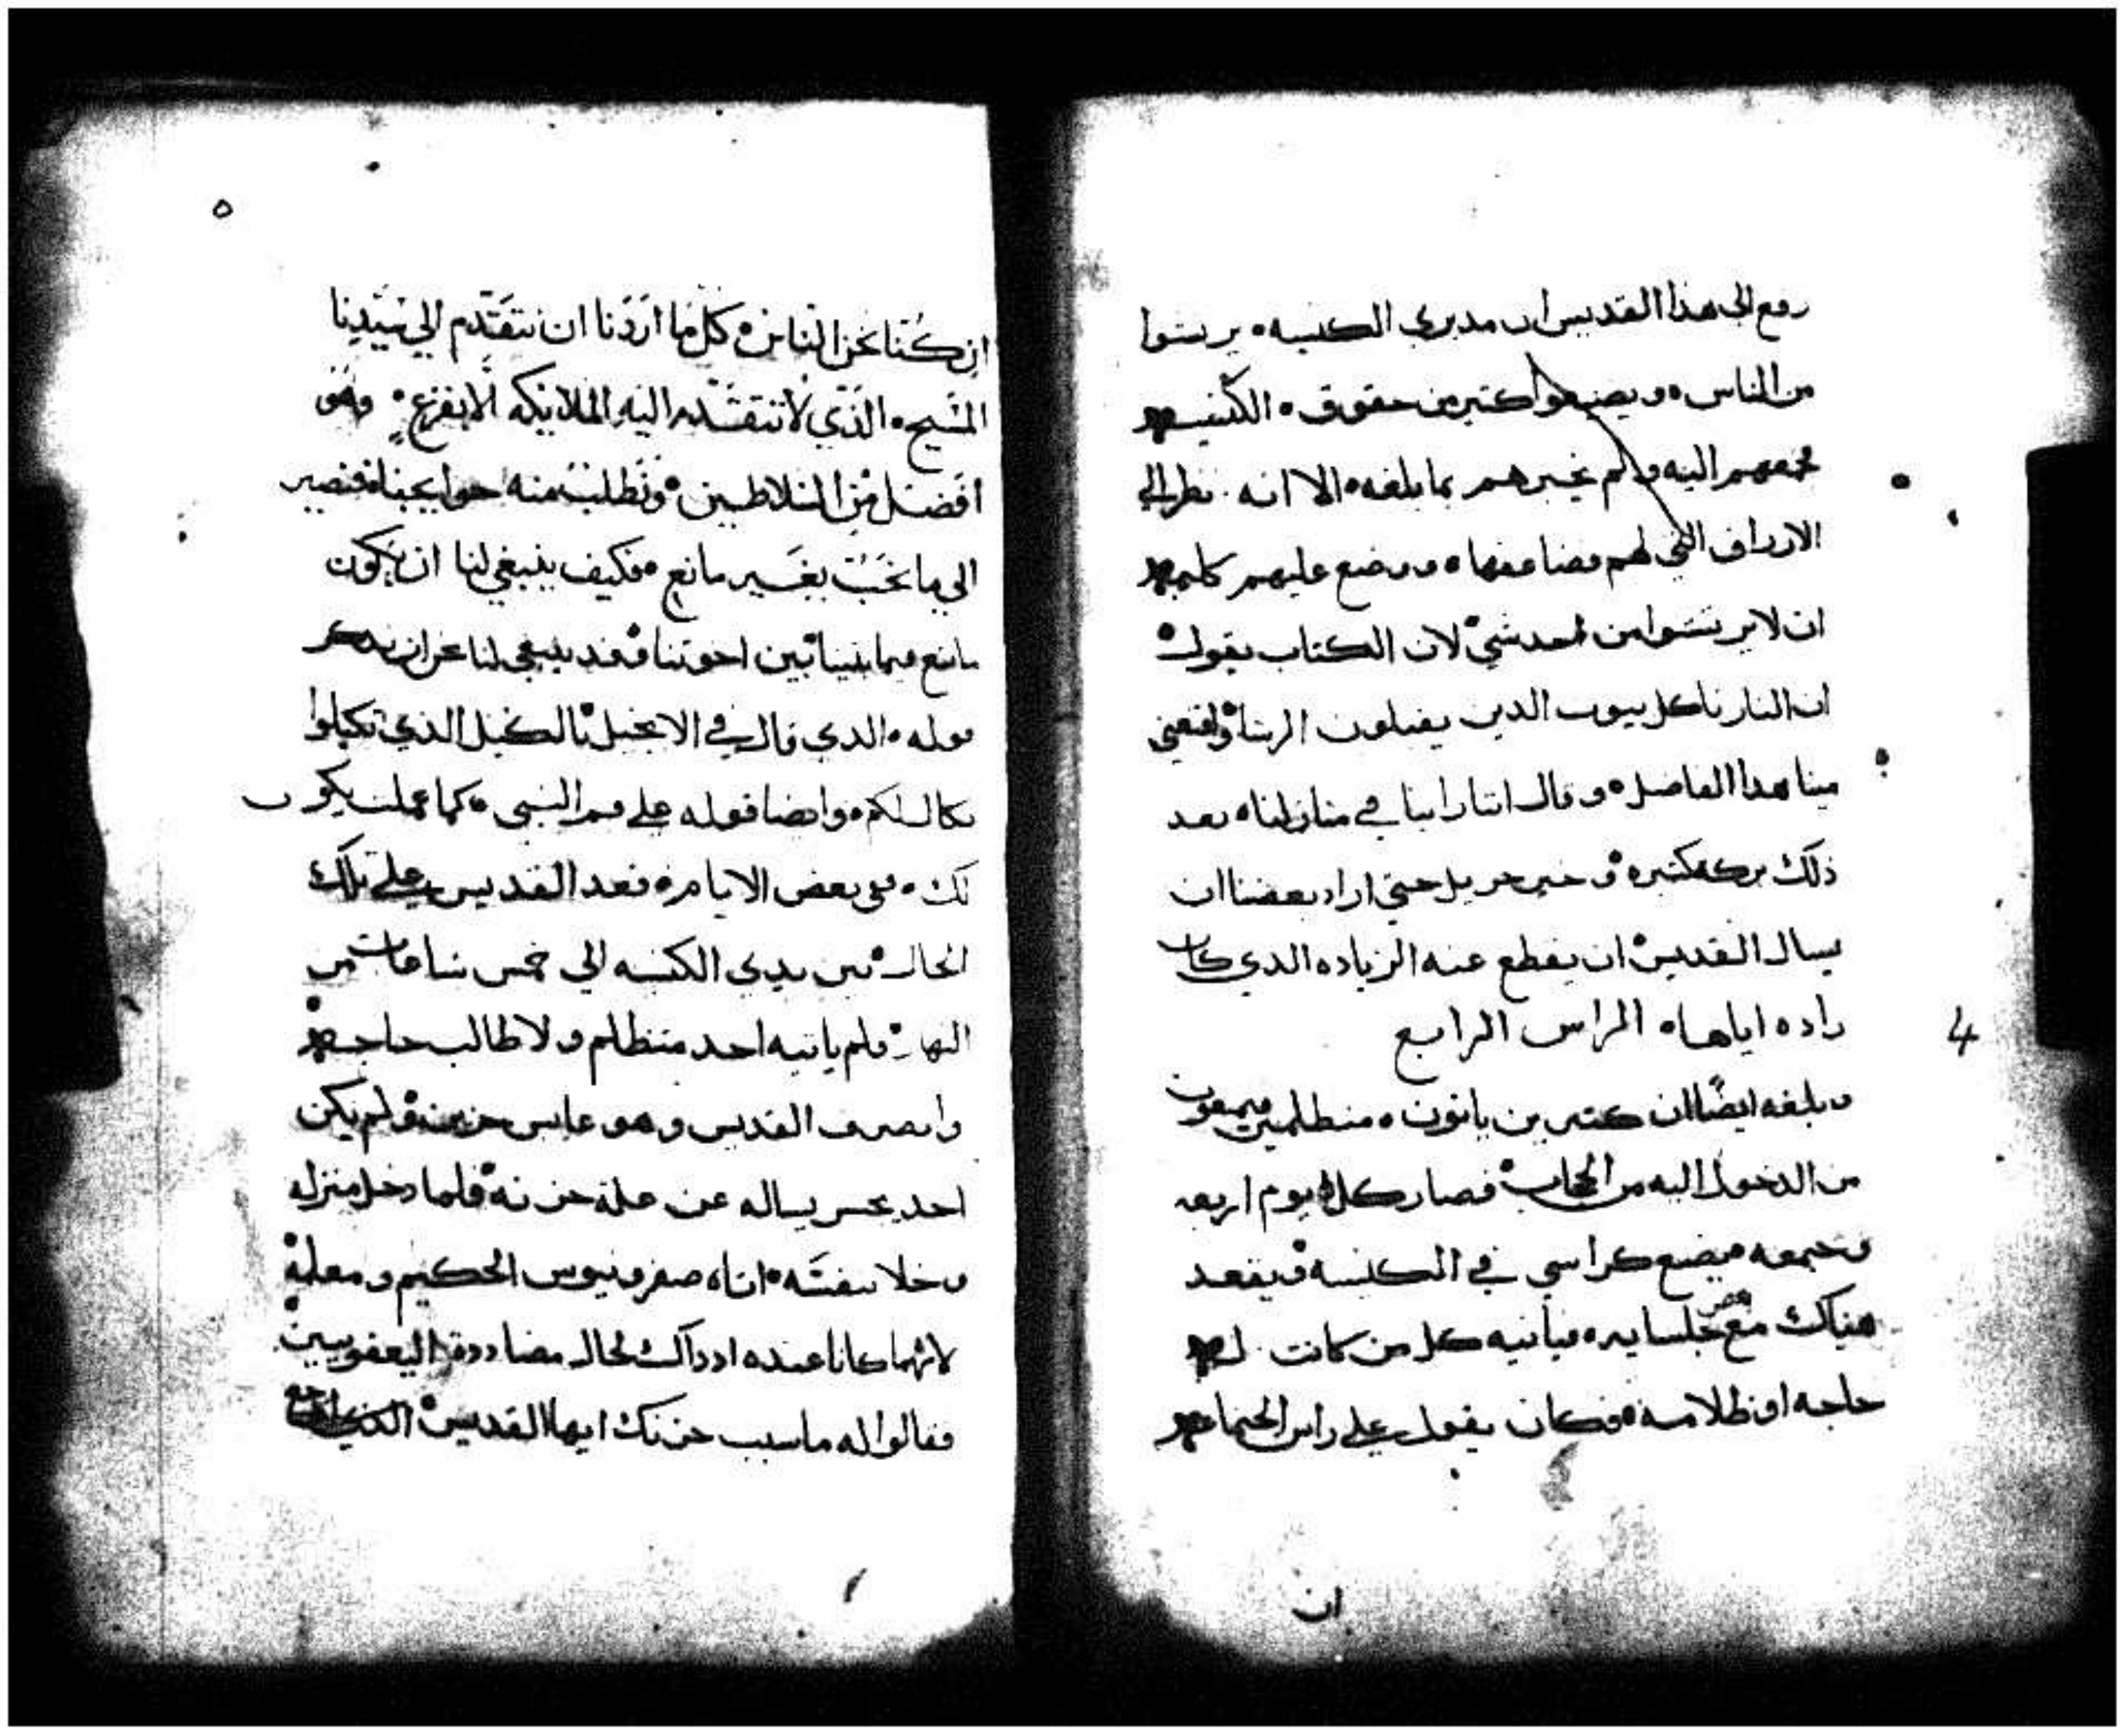 رفع الى هذا القديس ان مدبري الكنيسه ۰ يرتشوا
من الناس ۰ ويضيعوا كتير من حقوق ۰ الكنيسه
فجمعهم اليه ولم يخبرهم بما بلغه ۰ الا انه نظر الي
الارزاق التي لهم فضاعفها ۰ ووضع عليهم كلمه
ان لا يرتشوا من احد شي ۰ لان الكتاب يقول
ان النار تاكل بيوت الدين يقبلون الرشا ۰
مينا هدا الفاضل ۰ وقال اننا راينا في منازلنا ۰ بعد
ذلك بركه كتيره ۰ وخير جزيل حتي اراد بعضنا ان
يسال القديس ۰ ان يقطع عنه الزياده الدي كان
زاده اياها ۰ الراس الرابع
4
وبلغه ايضًا ان كتيرين ياتون ۰ متظلمين فيمنعون
من الدخول اليه من الحجاب ۰ فصار كل يوم اربعه
وجمعه يضع كراسي في الكنيسه ۰ ويقعد
هناك مع جلسايه ۰ فياتيه كل من كانت له
حاجه او ظلامه ۰ فكان يقول علي راس الجماعه
ان
٥
ان كُنّا نحن الناس ۰ كل ما اردنا ان نتقدّم الي سيّدنا
المسيح ۰ الذي لا تتقدم اليه الملايكه الا بفزع ۰ وهو
افضل من السلاطين ۰ ونطلب منه حوايجنا ۰ فنصير
الي ما نحب بغير مانع ۰ فكيف ينبغي لنا ان نكون
مانع فيما بيننا بين اخوتنا ۰ وقد ينبغي لنا نحن ان ندكر
قوله ۰ الدي قال في الانجيل ۰ بالكيل الذي تكيلوا
يكال لكم ۰ وايضا قوله علي فم النبي ۰ كما عملت يكون
لك ۰ ففي بعض الايام ۰ قعد القديس علي تلك
الحال ۰ بين يدي الكنيسه الي خمس ساعات من
النهار ۰ فلم ياتيه احد متظلم ولا طالب حاجه
وانصرف القديس وهو عابس حزين ۰ ولم يكن
احد يجسر يساله عن علة حزنه ۰ فلما دخل منزله
وخلا بنفسه ۰ اتاه صفرونيوس الحكيم ومعلمه
لانهما كانا عنده اذ داك لحال مضاددة اليعقوبيين
فقالوا له ما سبب حزنك ايها القديس ۰